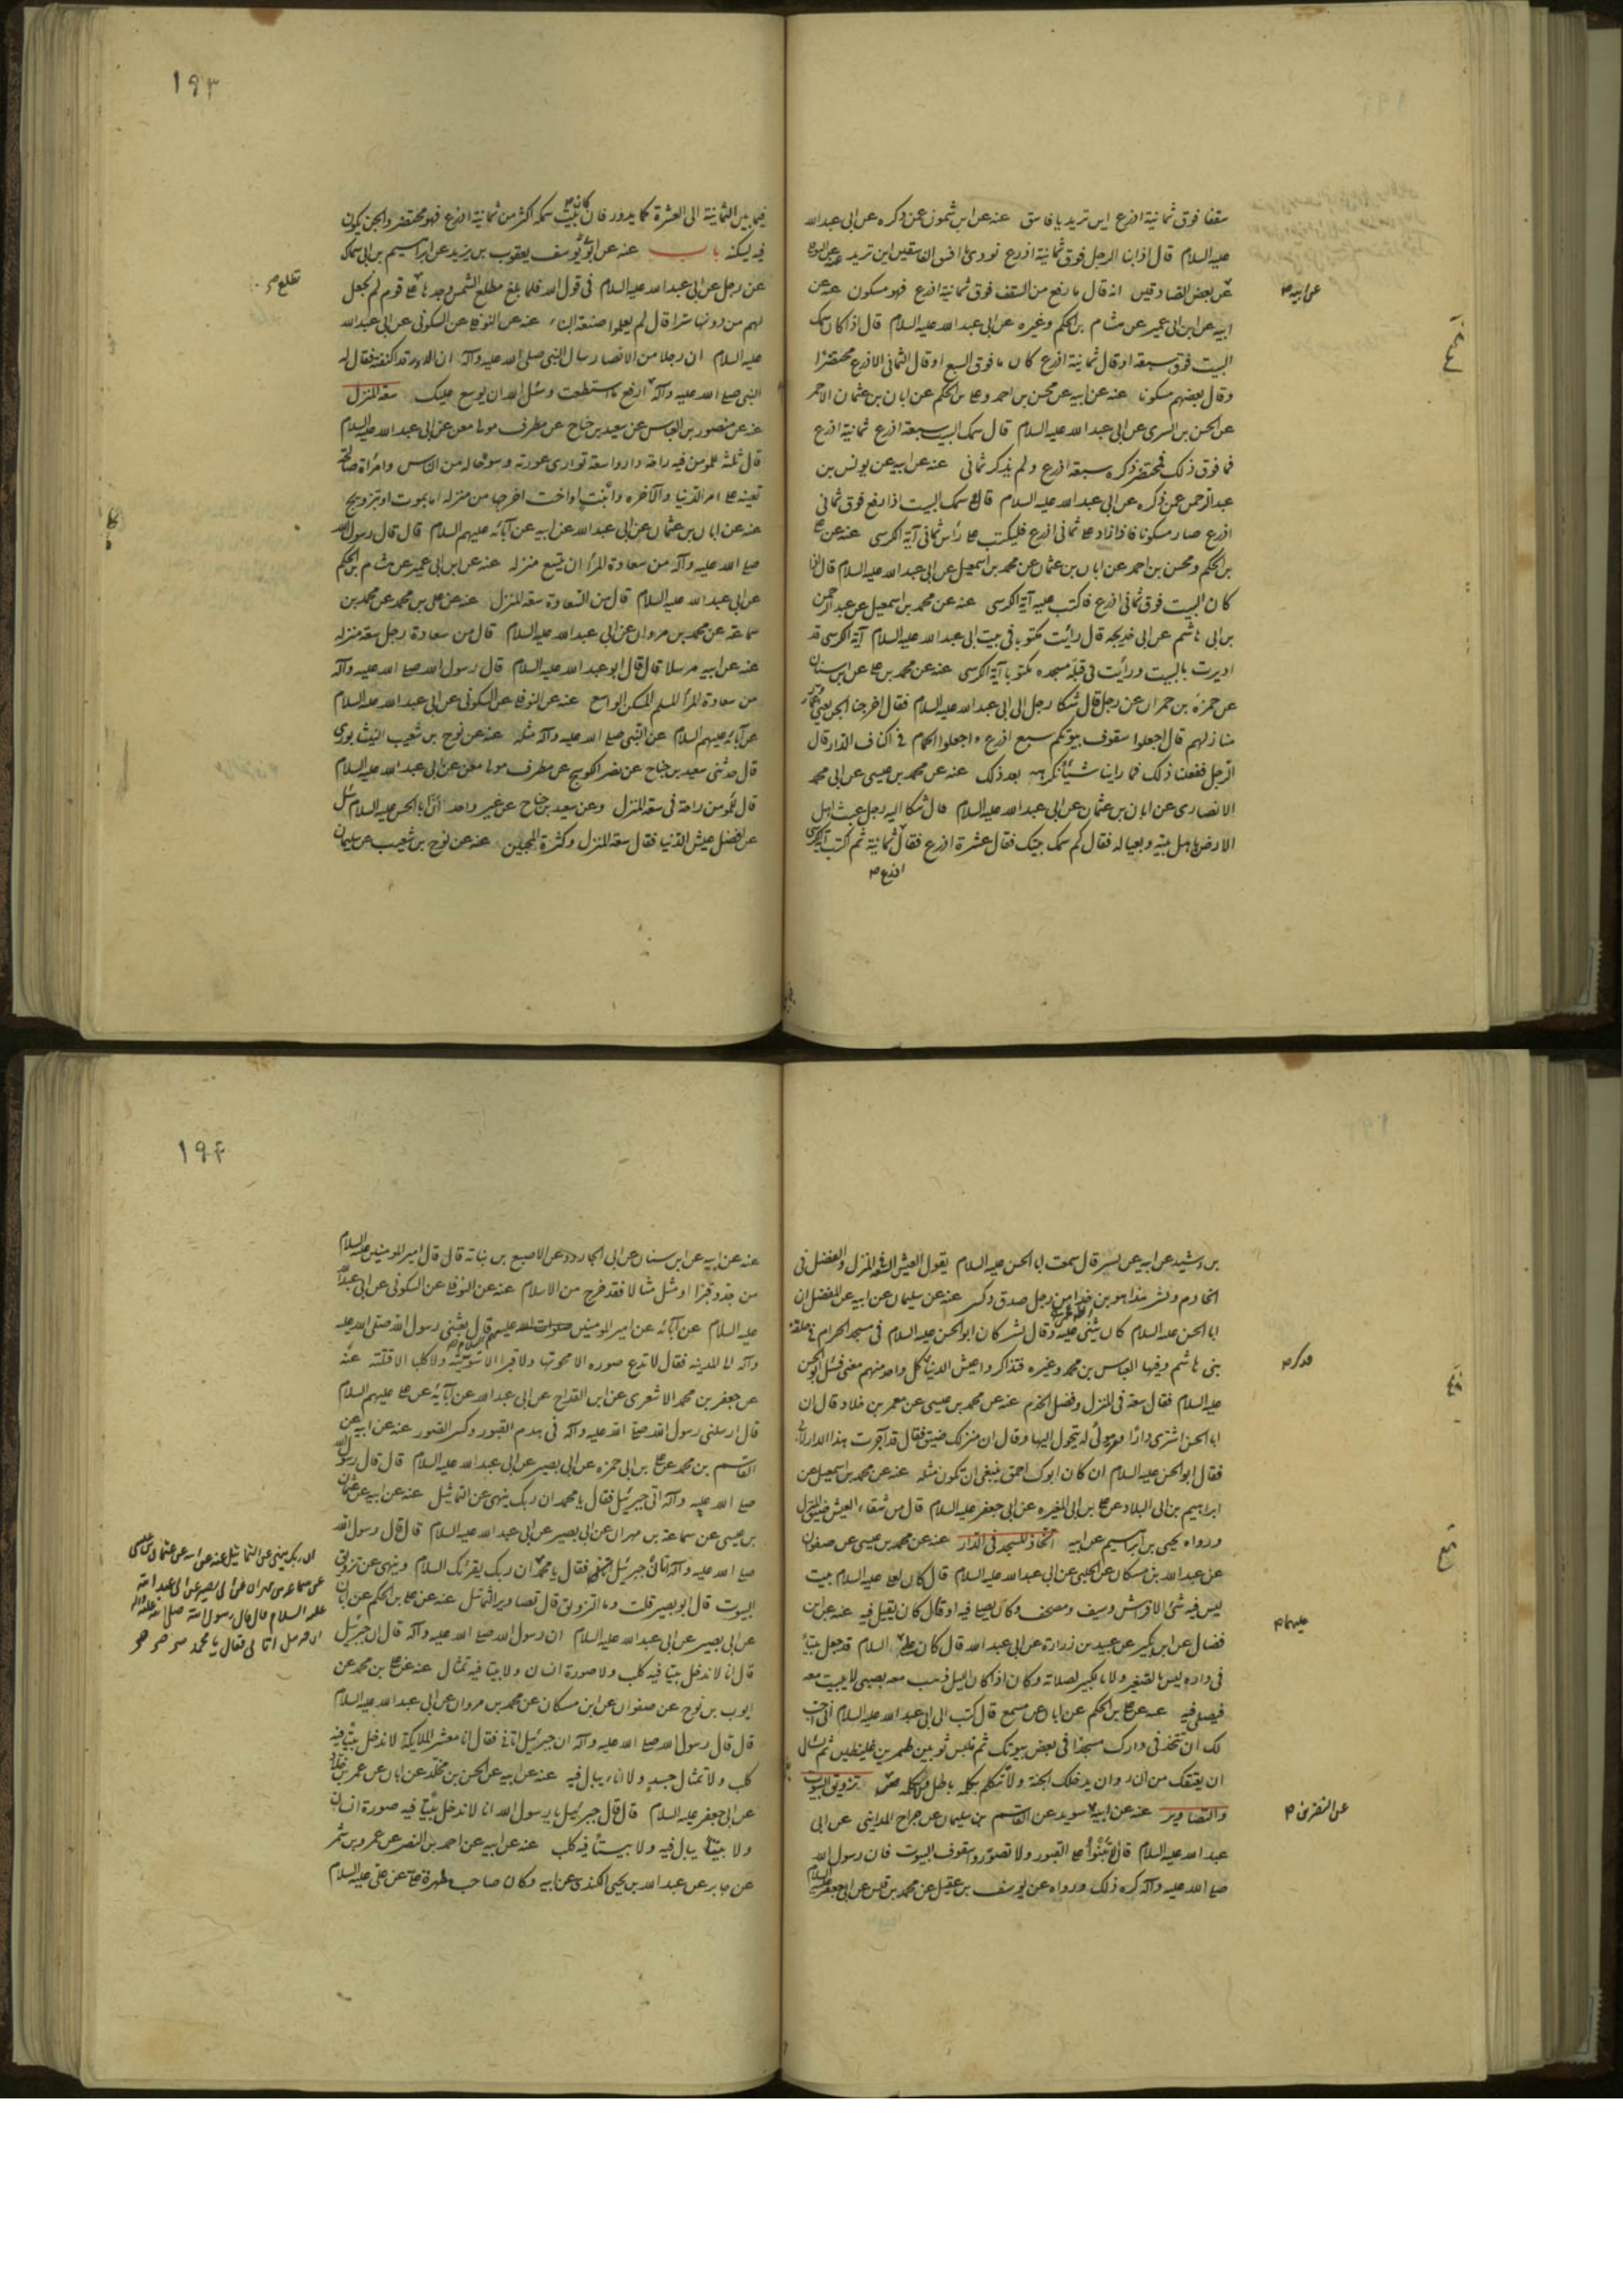 سقفا فوق ثمانية اذرع اين تريد يا فاسق عنه عن ابن شمون عمن ذكره عن ابى عبد الله
عليه السلام قال اذا بنا الرجل فوق ثمانية اذرع نودى يا افسق الفاسقين اين تريد
عن بعض الصادقين انه قال ما رفع من السقف فوق ثمانية اذرع فهو مسكون عنه عن
عن ابيه
ابيه عن ابن ابى عمير عن هشام بن الحكم وغيره عن ابى عبد الله عليه السلام قال اذا كان سمك
البيت فوق سبعة او قال ثمانية اذرع كان ما فوق السبع او قال الثمانى الاذرع محتضرا
وقال بعضهم مسكونا عنه عن ابيه عن محسن بن احمد وعلى بن الحكم عن ابان بن عثمان الاحمر
عن الحسن بن السرى عن ابى عبد الله عليه السلام قال سمك البيت سبعة اذرع ثمانية اذرع
فما فوق ذلك فمحتضر وذكره سبعة اذرع ولم يذكر ثمانى عنه عن ابيه عن يونس بن
عبد الرحمن عمن ذكره عن ابى عبد الله عليه السلام قال سمك البيت اذا رفع فوق ثمانى
اذرع صار مسكونا فاذا زاد على ثمانى اذرع فليكتب على رأس ثمانى آية الكرسى عنه عن على
بن الحكم ومحسن بن احمد عن ابان بن عثمان عن محمد بن اسمعيل عن ابى عبد الله عليه السلام قال اذا
كان البيت فوق ثمانى اذرع فاكتب عليه آية الكرسى عنه عن محمد بن اسمعيل عن عبد الرحمن
بن ابى هاشم عن ابى خديجه قال رأيت مكتوبا فى بيت ابى عبد الله عليه السلام آية الكرسى قد
اديرت بالبيت ورأيت فى قبلة مسجده مكتوبا آية الكرسى عنه عن محمد بن على عن ابن سنان
عن حمزة بن حمران عن رجل قال شكا رجل الى ابى عبد الله عليه السلام فقال اخرجنا الجن يعنى عمار
منازلهم قال اجعلوا سقوف بيوتكم سبع اذرع واجعلوا الحمام فى اكناف الدار قال
الرجل ففعلنا ذلك فما راينا شيئا نكرهه بعد ذلك عنه عن محمد بن عيسى عن ابى محمد
الانصارى عن ابان بن عثمان عن ابى عبد الله عليه السلام قال شكا اليه رجل عبث اهل
الارض باهل بيته وبعياله فقال كم سمك بيتك فقال عشرة اذرع فقال ثمانية ثم اكتب آية الكرسى
اذرع
١٩٣
فيما بين الثمانية الى العشرة كما يدور فان كل بيت سمكه اكثر من ثمانية اذرع فهو محتضر والجن يكون
فيه يسكنه باب عنه عن ابو يوسف يعقوب بن يزيد عن ابراهيم بن ابى سماك
عن رجل عن ابى عبد الله عليه السلام فى قول الله فلما بلغ مطلع الشمس وجدها على قوم لم نجعل
تطلع
لهم من دونها سترا قال لم يعلموا صنعة البناء عنه عن النوفلى عن السكونى عن ابى عبد الله
عليه السلام ان رجلا من الانصار سال النبى صلى الله عليه وآله ان الدور قد اكتنفته فقال له
النبى صلى الله عليه وآله ارفع ما استطعت وسئل الله ان يوسع عليك سعة المنزل
عنه عن منصور بن العباس عن سعيد بن جناح عن مطرف مولى معن عن ابى عبد الله عليه السلام
قال ثلثة للمومن فيه راحة دار واسعة توارى عورته وسوء حاله من الناس وامرأة صالحة
تعينه على امر الدنيا والآخره وابنت او اخت اخرجها من منزله اما بموت او بتزويج
عنه عن ابان بن عثمان عن ابى عبد الله عن ابيه عن آبائه عليهم السلام قال قال رسول الله
صلى الله عليه وآله من سعادة المرأ ان يتسع منزله عنه عن ابن ابى عمير عن هشام بن الحكم
عن ابى عبد الله عليه السلام قال من السعادة سعة المنزل عنه عن على بن محمد عن محمد بن
سماعة عن محمد بن مروان عن ابى عبد الله عليه السلام قال من سعادة رجل سعة منزله
عنه عن ابيه مرسلا قال قال ابو عبد الله عليه السلام قال رسول الله صلى الله عليه وآله
من سعادة المرأ المسلم المسكن الواسع عنه عن النوفلى عن السكونى عن ابى عبد الله عليه السلام
عن آبائه عليهم السلام عن النبى صلى الله عليه وآله مثله عنه عن نوح بن شعيب النيشابورى
قال حدثنى سعيد بن جناح عن نصر الكوسج عن مطرف مولى معن عن ابى عبد الله عليه السلام
قال للمومن راحة فى سعة المنزل وعن سعيد بن جناح عن غير واحد ان ابا الحسن عليه السلام سئل
عن افضل عيش الدنيا فقال سعة المنزل وكثرة المحبين عنه عن نوح بن شعيب عن سليمان
بن رشيد عن ابيه عن بشر قال سمعت ابا الحسن عليه السلام يقول العيش السعة فى المنزل والفضل فى
الخادم وبشر هذا هو بن خدام رجل صدق ذكر عنه عن سليمان عن ابيه عن المفضل ان
ابا الحسن عليه السلام كان يثنى عليه وقال بشر كان ابو الحسن عليه السلام فى مسجد الحرام فى حلقة
بنى هاشم وفيها العباس بن محمد وغيره فتذاكروا عيش الدنيا كل واحد منهم معنى فسئل ابو الحسن
فذكر
عليه السلام فقال سعة فى المنزل وفضل الخدم عنه عن محمد بن عيسى عن معمر بن خلاد قال ان
ابا الحسن اشترى دارا فمر مولى له تحول اليها وقال ان منزلك ضيق فقال قد اجزت هذا الدار لابى
فقال ابو الحسن عليه السلام ان كان ابوك احمق ينبغى ان تكون مثله عنه عن محمد بن اسمعيل عن
ابراهيم بن ابى البلاد عن على بن ابى المغيره عن ابى جعفر عليه السلام قال من شقاء العيش ضيق المنزل
ورواه يحيى بن ابراهيم عن ابيه اتخاذ المسجد فى الدار عنه عن محمد بن عيسى عن صفوان
عن عبد الله بن مسكان عن الحلبى عن ابى عبد الله عليه السلام قال كان لعلى عليه السلام بيت
ليس فيه شئ الا فراش وسيف ومصحف وكان يصلى فيه او قال كان يقيل فيه عنه عن ابن
فضال عن ابن بكير عن عبيد بن زرارة عن ابى عبد الله قال كان على السلام قد جعل بيتا
عليهما
فى داره ليس بالصغير ولا بالكبير لصلاته وكان اذا كان الليل ذهب معه بصبى لا يبيت معه
فيصلى فيه عنه عن على بن الحكم عن ابان عن مسمع قال كتب الى ابى عبد الله عليه السلام انى احب
لك ان تتخذ فى دارك مسجدا فى بعض بيوتك ثم تلبس ثوبين طمرين غليظين ثم تسأل
ان يعتقك من النار وان يدخلك الجنة ولا تتكلم بكلمه باطل تزويق البيوت
والتصاوير عنه عن ابيه سويد عن القاسم بن سليمان عن جراح المداينى عن ابى
عن النضر بن
عبد الله عليه السلام قال لا تبنوا على القبور ولا تصوروا سقوف البيوت فان رسول الله
صلى الله عليه وآله كره ذلك ورواه عن يوسف بن عقيل عن محمد بن قيس عن ابى جعفر عليه السلام
١٩٤
عنه عن ابيه عن ابن سنان عن ابى الجارود عن الاصبغ بن نباته قال قال امير المومنين عليه السلام
من جدد قبرا او مثل مثالا فقد خرج من الاسلام عنه عن النوفلى عن السكونى عن ابى عبد الله
عليه السلام عن آبائه عن امير المومنين صلوات الله عليهم قال بعثنى رسول الله صلى الله عليه
وآله الى المدينه فقال لا تدع صوره الا محوتها ولا قبرا الا سويته ولا كلبا الا قتلته عنه
عن جعفر بن محمد الاشعرى عن ابن القداح عن ابى عبد الله عن آبايه عن على عليهم السلام
قال ارسلنى رسول الله صلى الله عليه وآله فى هدم القبور وكسر الصور عنه عن ابيه عن
القاسم بن محمد عن على بن ابى حمزه عن ابى بصير عن ابى عبد الله عليه السلام قال قال رسول الله
صلى الله عليه وآله اتانى جبرئيل فقال يا محمد ان ربك ينهى عن التماثيل عنه عن ابيه عن عثمان
بن عيسى عن سماعة بن مهران عن ابى بصير عن ابى عبد الله عليه السلام قال قال رسول الله
صلى الله عليه وآله اتانى جبرئيل فقال يا محمد ان ربك يقرئك السلام وينهى عن تزويق
البيوت قال ابو بصير قلت وما التزويق قال تصاوير التماثيل عنه عن على بن الحكم عن ابان
عن ابى بصير عن ابى عبد الله عليه السلام ان رسول الله صلى الله عليه وآله قال ان جبرئيل
قال انا لا ندخل بيتا فيه كلب ولا صورة انسان ولا بيتا فيه تمثال عنه عن على بن محمد عن
ايوب بن نوح عن صفوان عن ابن مسكان عن محمد بن مروان عن ابى عبد الله عليه السلام
قال قال رسول الله صلى الله عليه وآله ان جبرئيل اتانى فقال انا معشر الملايكة لا ندخل بيتا فيه
كلب ولا تمثال جسد ولا اناء يبال فيه عنه عن ابيه عن الحسن بن مخلد عن ابان عن عمر بن خلاد
عن ابى جعفر عليه السلام قال قال جبرئيل يا رسول الله انا لا ندخل بيتا فيه صورة انسان
ولا بيتا يبال فيه ولا بيتا فيه كلب عنه عن ابيه عن احمد بن النضر عن عمرو بن شمر
عن جابر عن عبد الله بن يحيى الكندى عن ابيه وكان صاحب مطهرة على عن على عليه السلام
ان ربك ينهى عن التماثيل عنه عن ابيه عن عثمان بن عيسى
عن سماعة بن مهران عن ابى بصير عن ابى عبد الله
عليه السلام قال قال رسول الله صلى الله عليه وآله
ان جبرئيل اتانى فقال يا محمد